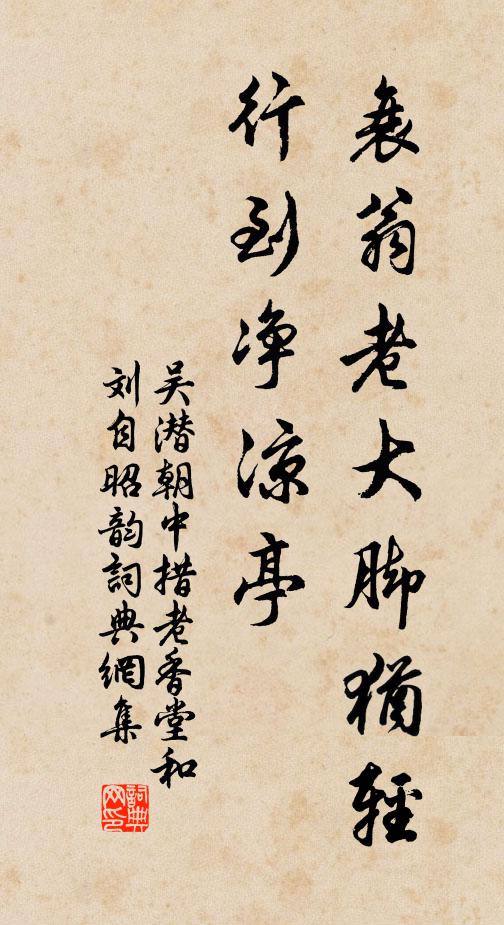 衰翁老大脚猶輕
行到净凉亭
吴潜朝中措老香堂和
刘自昭韵詞典網集
詞典网印